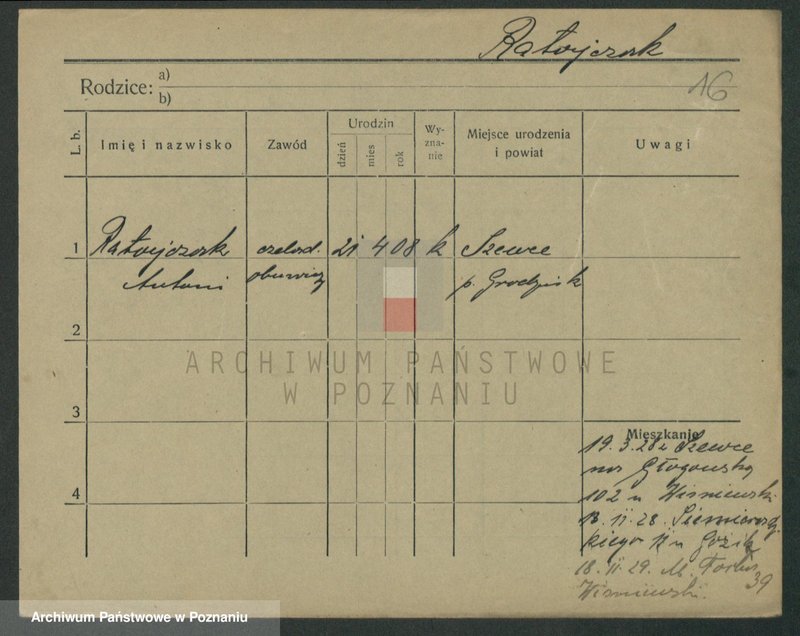 Ratajczak
Rodzice: a)
b)
16
L. b.
Imię i nazwisko
Zawód
Urodzin
dzień
mies
rok
Wy-
zna-
nie
Miejsce urodzenia
i powiat
Uwagi
1
Ratajczak
Antoni
czelad.
obuwniczy
21
4
08
k
Szewce
p. Grodzisk
2
3
4
ARCHIWUM PAŃSTWOWE
W POZNANIU
Mieszkanie
19.3.28 z Szewce
na Głogowską
102 u Wiśniewski
13.11.28.
kiego 11 u
18.11.29. M.
Wiśniewski.
39
Archiwum Państwowe w Poznaniu